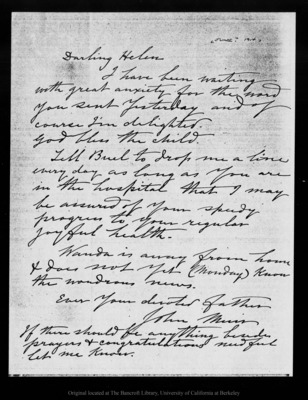 Darling Helen
I have been waiting
with great anxiety for the word
you sent yesterday and of
course I'm delighted.
God bless the child.
Tell Buel to drop me a line
every day as long as you are
in the hospital that I may
be assured of your speedy
progress to your regular
joyful health.
Wanda is away from home
& does not yet (Monday) know
the wondrous news.
Ever your devoted father
John Muir
If there should be anything besides
prayers & congratulations needful
let me know.
Original located at The Bancroft Library, University of California at Berkeley